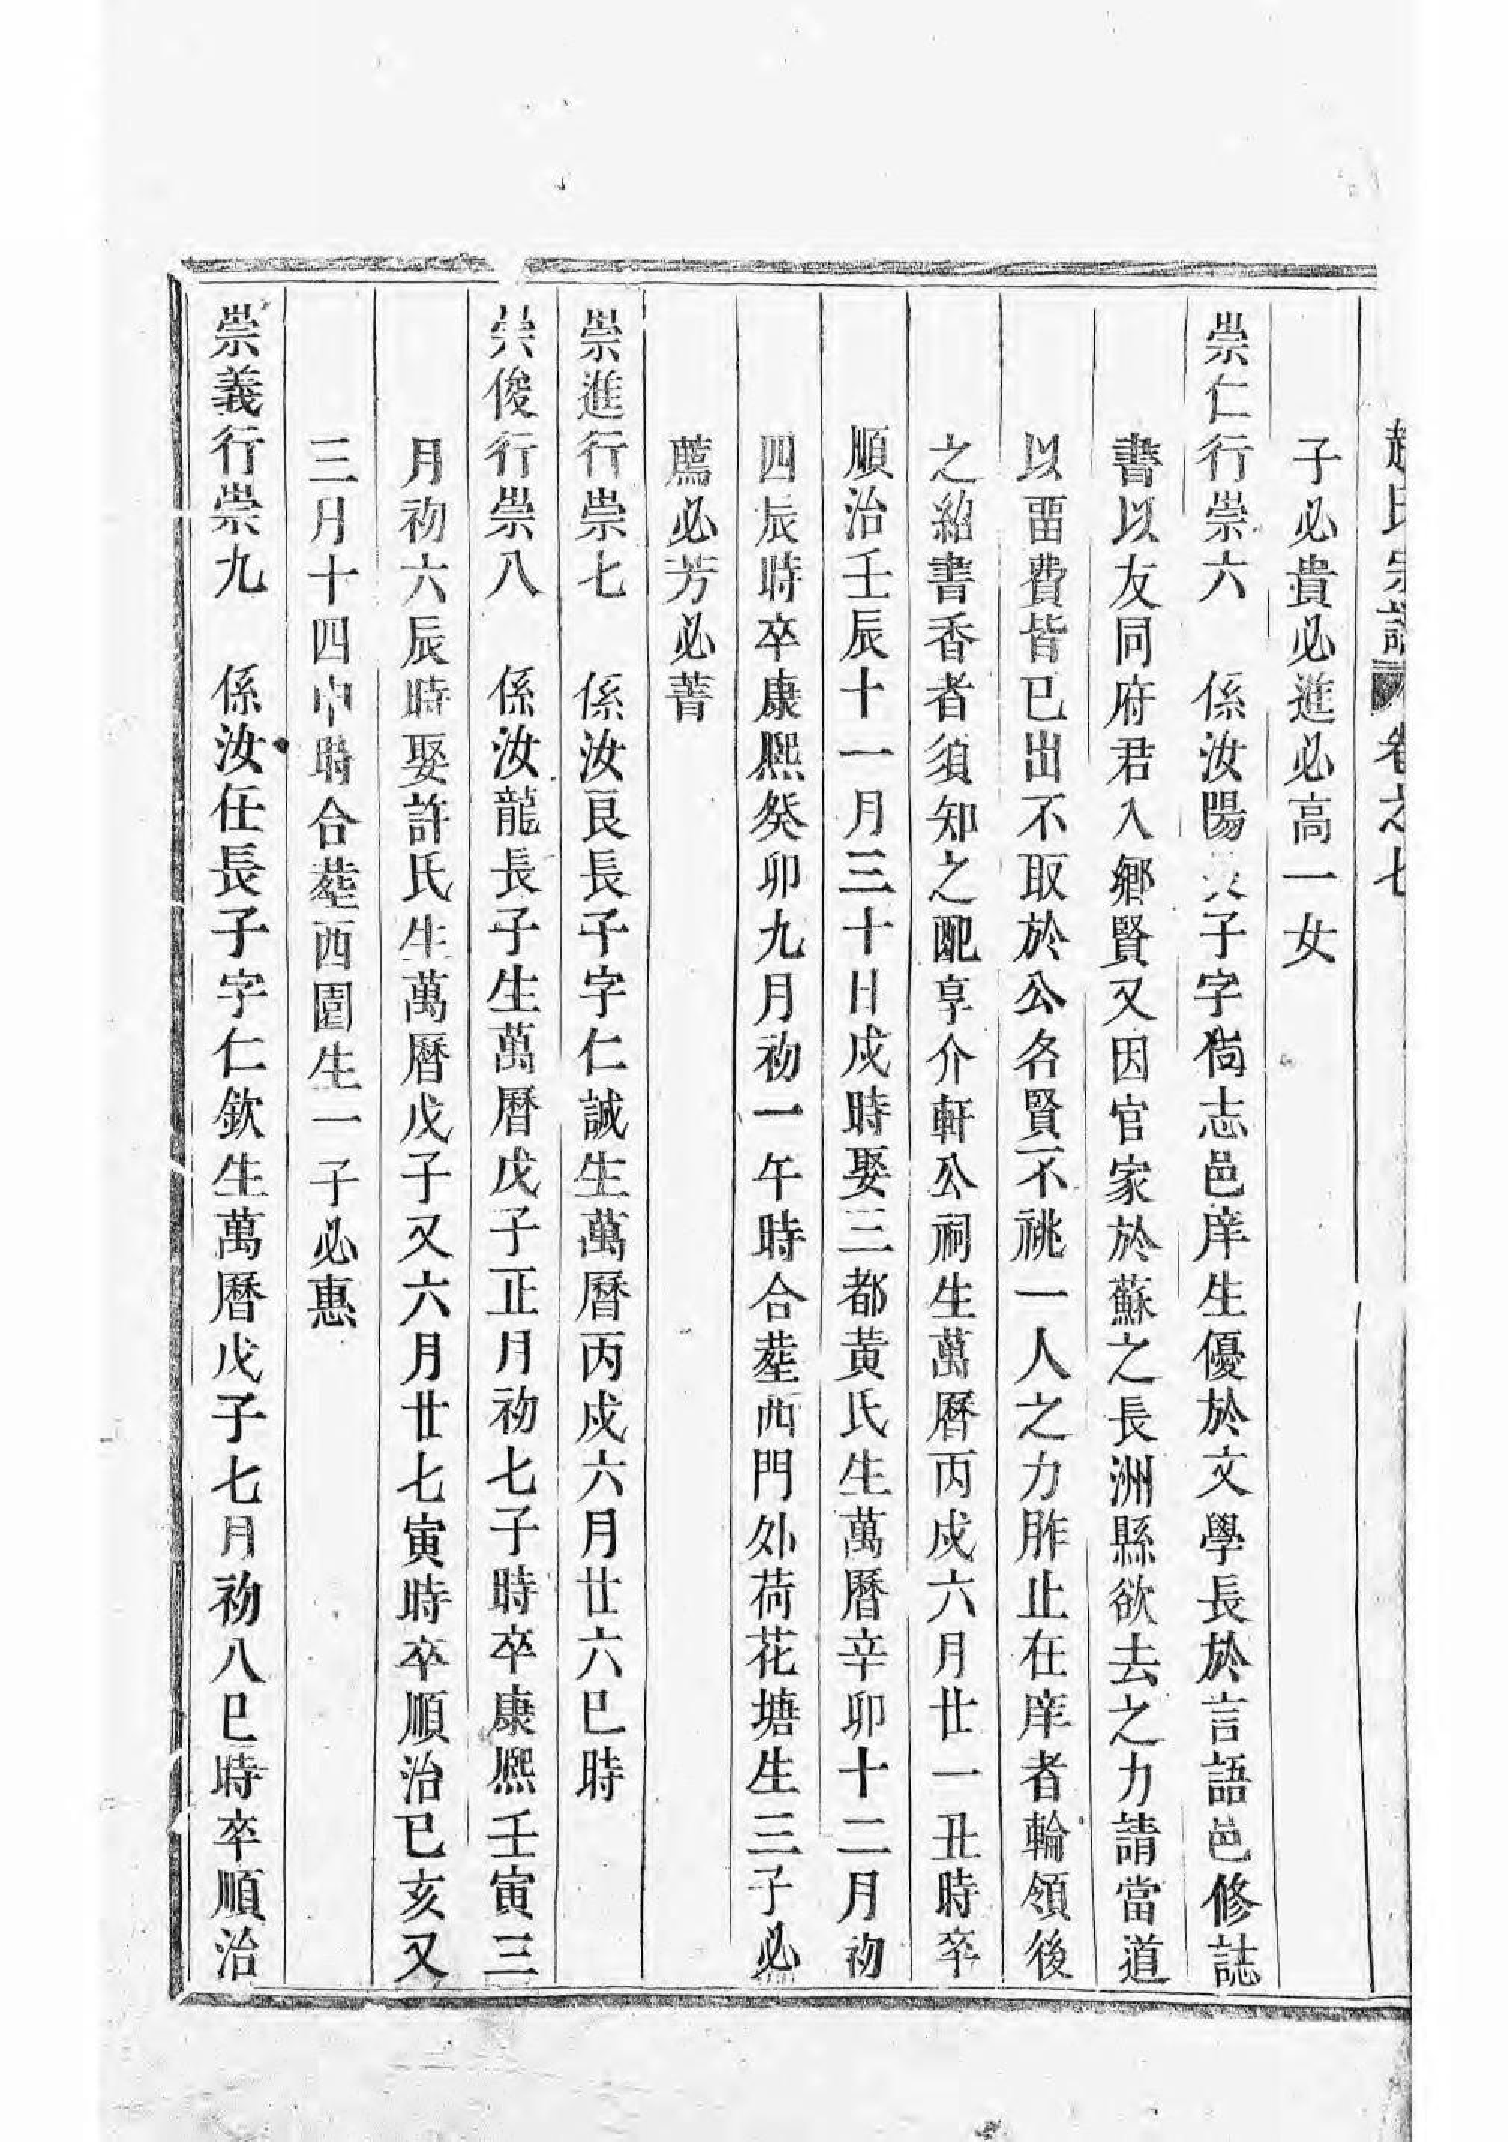 趙氏宗譜 卷之七
子必貴必進必高一女
崇仁行崇六 係汝陽長子字尚志邑庠生優於文學長於言語邑修誌
書以友同府君入鄉賢又因官家於蘇之長洲縣欲去之力請當道
以畱費皆已出不取於公名賢不祧一人之力胙止在庠者輪領後
之紹書香者須知之配享介軒公祠生萬曆丙戍六月廿一丑時卒
順治壬辰十一月三十日戍時娶三都黃氏生萬曆辛卯十二月初
四辰時卒康熙癸卯九月初一午時合塟西門外荷花塘生三子必
薦必芳必菁
崇進行崇七 係汝良長子字仁誠生萬曆丙戍六月廿六巳時
崇俊行崇八 係汝龍長子生萬曆戊子正月初七子時卒康熙壬寅三
月初六辰時娶許氏生萬曆戊子又六月廿七寅時卒順治已亥又
三月十四申時合塟西園生一子必惠
崇義行崇九 係汝任長子字仁欽生萬曆戊子七月初八巳時卒順治